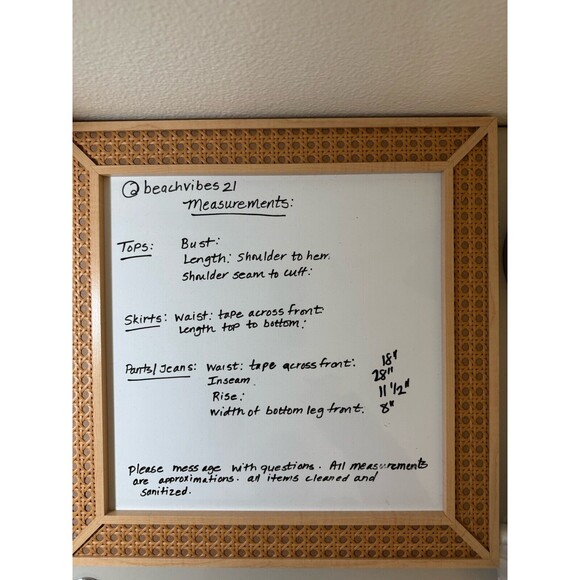 @beachvibes21
Measurements:
Tops: Bust:
Length: Shoulder to hem.
Shoulder seam to cuff:
Skirts: Waist: tape across front:
Length top to bottom:
Pants/Jeans: Waist: tape across front: 18"
Inseam. 28"
Rise: 11 1/2"
Width of bottom leg front. 8"
Please message with questions. All measurements
are approximations. all items cleaned and
sanitized.